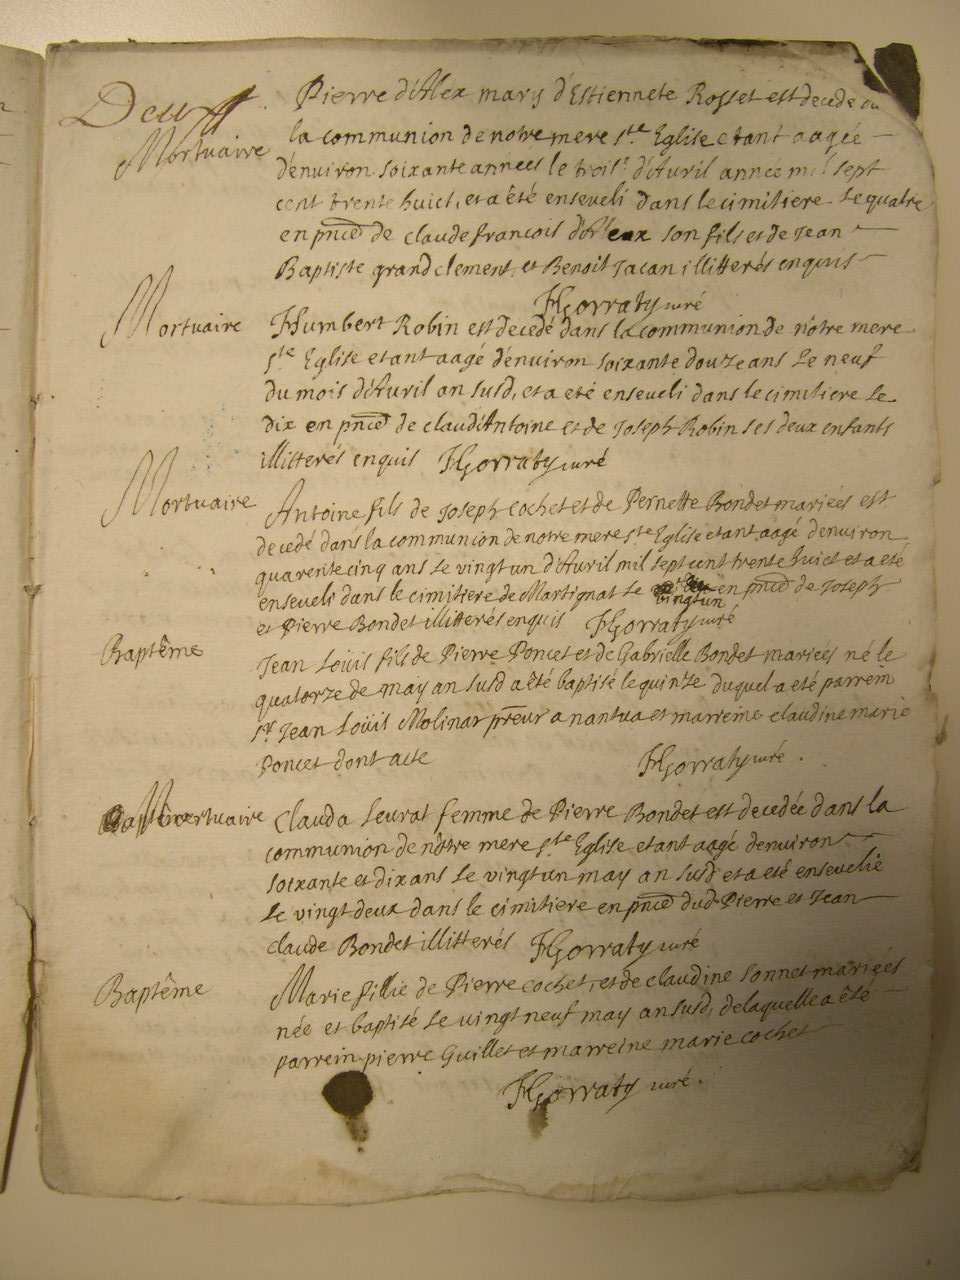 Deux
Mortuaire
Pierre d'Alex mary d'Estiennete Rosset est decede en
la communion de notre mere Ste Eglise etant aagée
d'environ soixante années le trois d'Avril année mil sept
cent trente huict, et a êté enseveli dans le cimitiere le quatre
en pnce de Claude francois d'Alex son fils et de Jean
Baptiste grandclement, et Benoit Jacan illitterés enquis
Gorraty curé
Mortuaire
Humbert Robin est decedé dans la communion de nôtre mere
Ste Eglise etant aagé d'environ soixante douze ans le neuf
du mois d'Avril an susd, et a eté enseveli dans le cimitiere le
dix en pnce de Claud'Antoine et de Joseph Robin ses deux enfants
illitterés enquis Gorraty curé
Mortuaire
Antoine fils de Joseph Cochet et de Pernette Bondet mariées est
decedé dans la communion de notre mere Ste Eglise etant aagé d'environ
quarente cinq ans le vingt un d'Avril mil sept cent trente huict et a eté
enseveli dans le cimitiere de Martignat le vingt un en pnce de Joseph
et Pierre Bondet illitterés enquis Gorraty curé
Baptême
Jean Loüis fils de Pierre Poncet et de Gabrielle Bondet mariées né le
quatorze de may an susd a êté baptisé le quinze duquel a eté parrein
Sr Jean Loüis Molinar preur a nantua et marreine claudine marie
Poncet dont acte Gorraty curé.
Mortuaire
Clauda Levrat femme de Pierre Bondet est decedée dans la
communion de nôtre mere Ste Eglise etant aagé denviron
soixante et dix ans le vingt un may an susd et a eté ensevelie
le vingt deux dans le cimitiere en pnce dud Pierre et Jean
claude Bondet illitterés Gorraty curé
Baptême
Marie fillie de Pierre cochet, et de claudine sonnet mariées
née et baptisé le vingt neuf may an susd, de laquelle a êté
parrein pierre Guillet et marreine marie cochet
Gorraty curé.